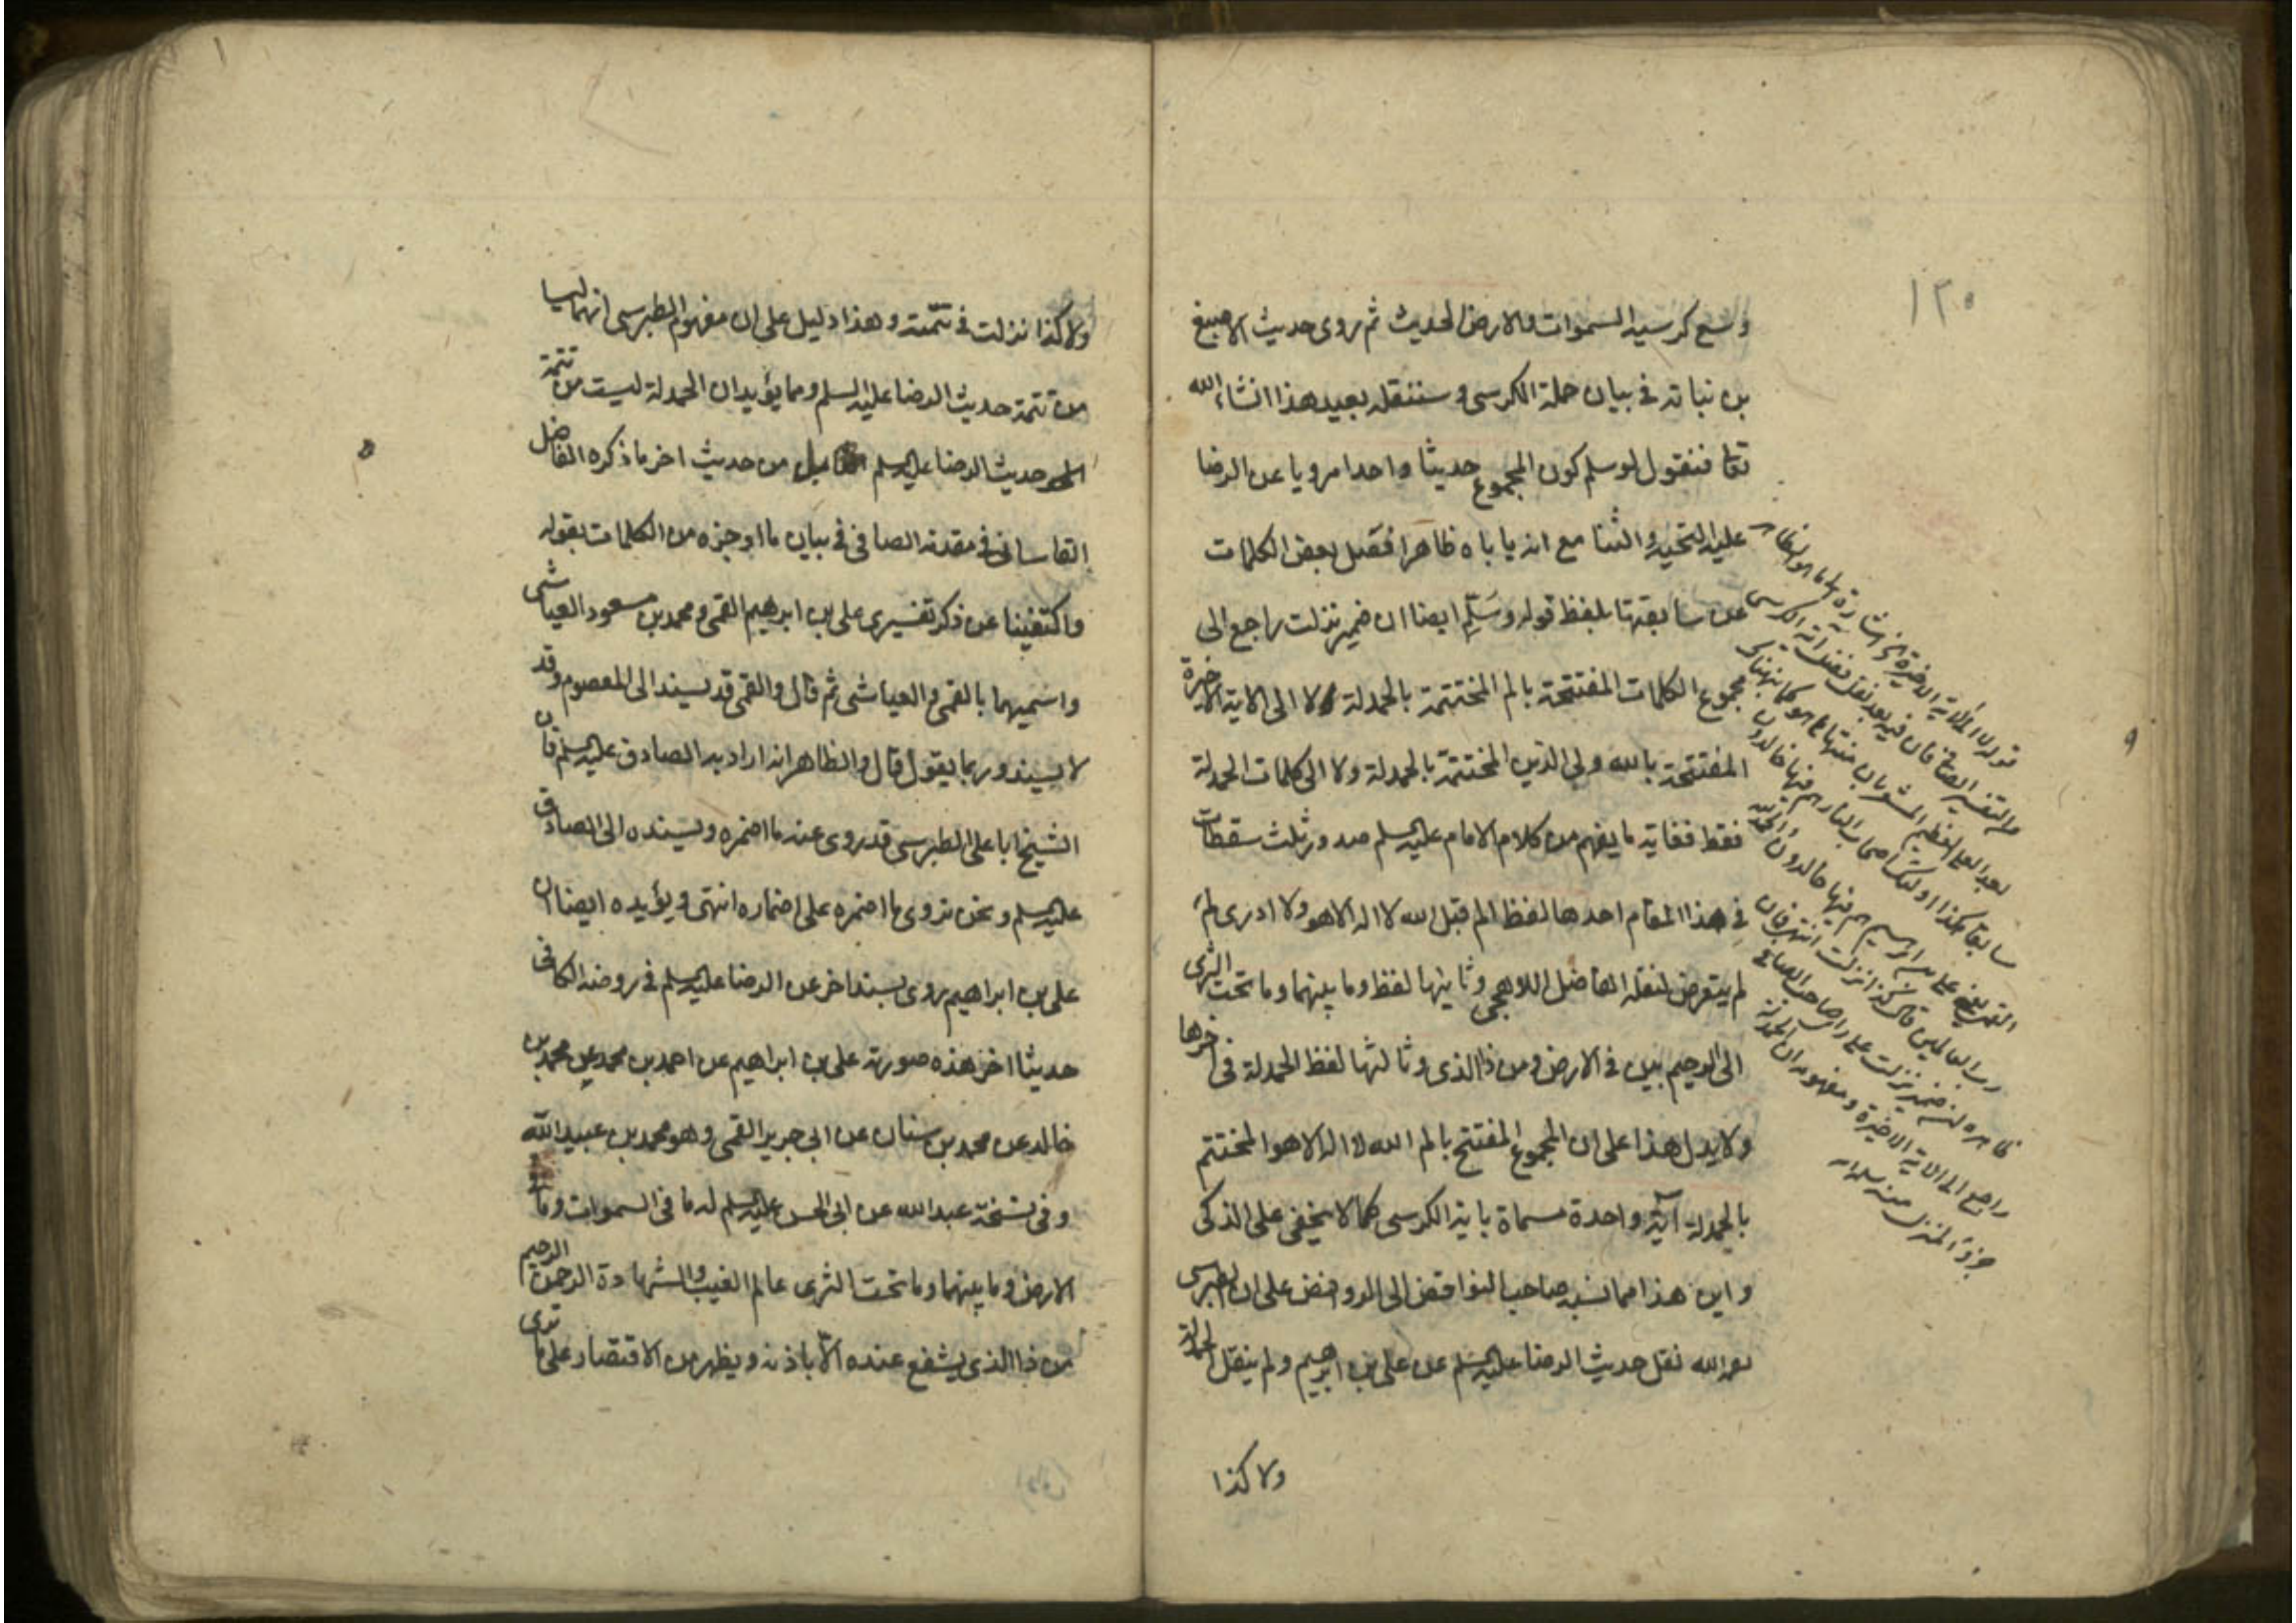 ١٢٥
وسع كرسيه السموات والارض الحديث ثم روى حديث الاصبغ
بن نباته في بيان حملة الكرسى وسننقله بعيد هذا انشاء الله
تعا فنقول لو سلم كون المجموع حديثا واحدا مرويا عن الرضا
عليه التحية والثنا مع انه ياباه ظاهرا فصل بعض الكلمات
عن سابقتها بلفظ قوله وسلم ايضا ان ضمير نزلت راجع الى
مجموع الكلمات المفتتحة بالم المختتمة بالحمدلة ولا الى الاية الاخيرة
المفتتحة بالله ولى الذين المختتمة بالحمدلة ولا الى كلمات الحمدلة
فقط فغاية ما يفهم من كلام الامام عليه السلم صدور ثلث سقطات
في هذا المقام احدها لفظ الم قبل الله لا اله الا هو ولا ادرى لم
لم يتعرض لنقله الفاضل اللاهجى وثانيها لفظ وما بينهما وما تحت الثرى
الى الرحيم بين في الارض ومن ذا الذى وثالثها لفظ الحمدلة في اخرها
ولا يدل هذا على ان المجموع المفتتح بالم الله لا اله الا هو المختتم
بالحمدلة آية واحدة مسماة باية الكرسى كما لا يخفى على الذكى
واين هذا مما نسبه صاحب النواقض الى الروافض على ان الطبرسى
نقل حديث الرضا عليه السلم عن على بن ابرهيم ولم ينقل الحمدلة
ولا كذا
قوله الى الاية الاخيرة
فان فيه بعد نقل فضل آية الكرسى
سابقا هكذا اولئك اصحاب النار هم فيها خالدون
على بن ابرهيم هم فيها خالدون والحمد لله
رب العالمين قال كذا نزلت انتهى فان
ظاهره ان ضمير نزلت على
راجع الى الاية الاخيرة ومفهومه ان الحمدلة
جزؤ المنزل منه
ولا كذا نزلت في تتمته وهذا دليل على ان مفهوم الطبرسى انهما ليسا
من تتمة حديث الرضا عليه السلم ومما يؤيد ان الحمدلة ليست من تتمة
حديث الرضا عليه السلم بل من حديث اخر ما ذكره الفاضل
القاسانى في مقدمة الصافى في بيان ما اوجزه من الكلمات بقوله
واكتفينا عن ذكر تفسيرى على بن ابرهيم القمى ومحمد بن مسعود العياشى
واسميهما بالقمى والعياشى ثم قال والقمى قد يسند الى المعصوم وقد
لا يسند وربما يقول قال والظاهر انه اراد به الصادق عليه السلم فان
الشيخ ابا على الطبرسى قد روى عنه ما اضمره ويسنده الى الصادق
عليه السلم ونحن نروى ما اضمره على اضماره انتهى ويؤيده ايضا ان
على بن ابراهيم روى بسند اخر عن الرضا عليه السلم في روضة الكافى
حديثا اخر هذه صورته على بن ابراهيم عن احمد بن محمد عن محمد بن
خالد عن محمد بن سنان عن ابى جرير القمى وهو محمد بن عبيد الله
وفى نسخة عبد الله عن ابى الحسن عليه السلم له ما فى السموات وما في
الارض وما بينهما وما تحت الثرى عالم الغيب والشهادة الرحمن الرحيم
من ذا الذى يشفع عنده الا باذنه ويظهر من الاقتصار على ما ترى